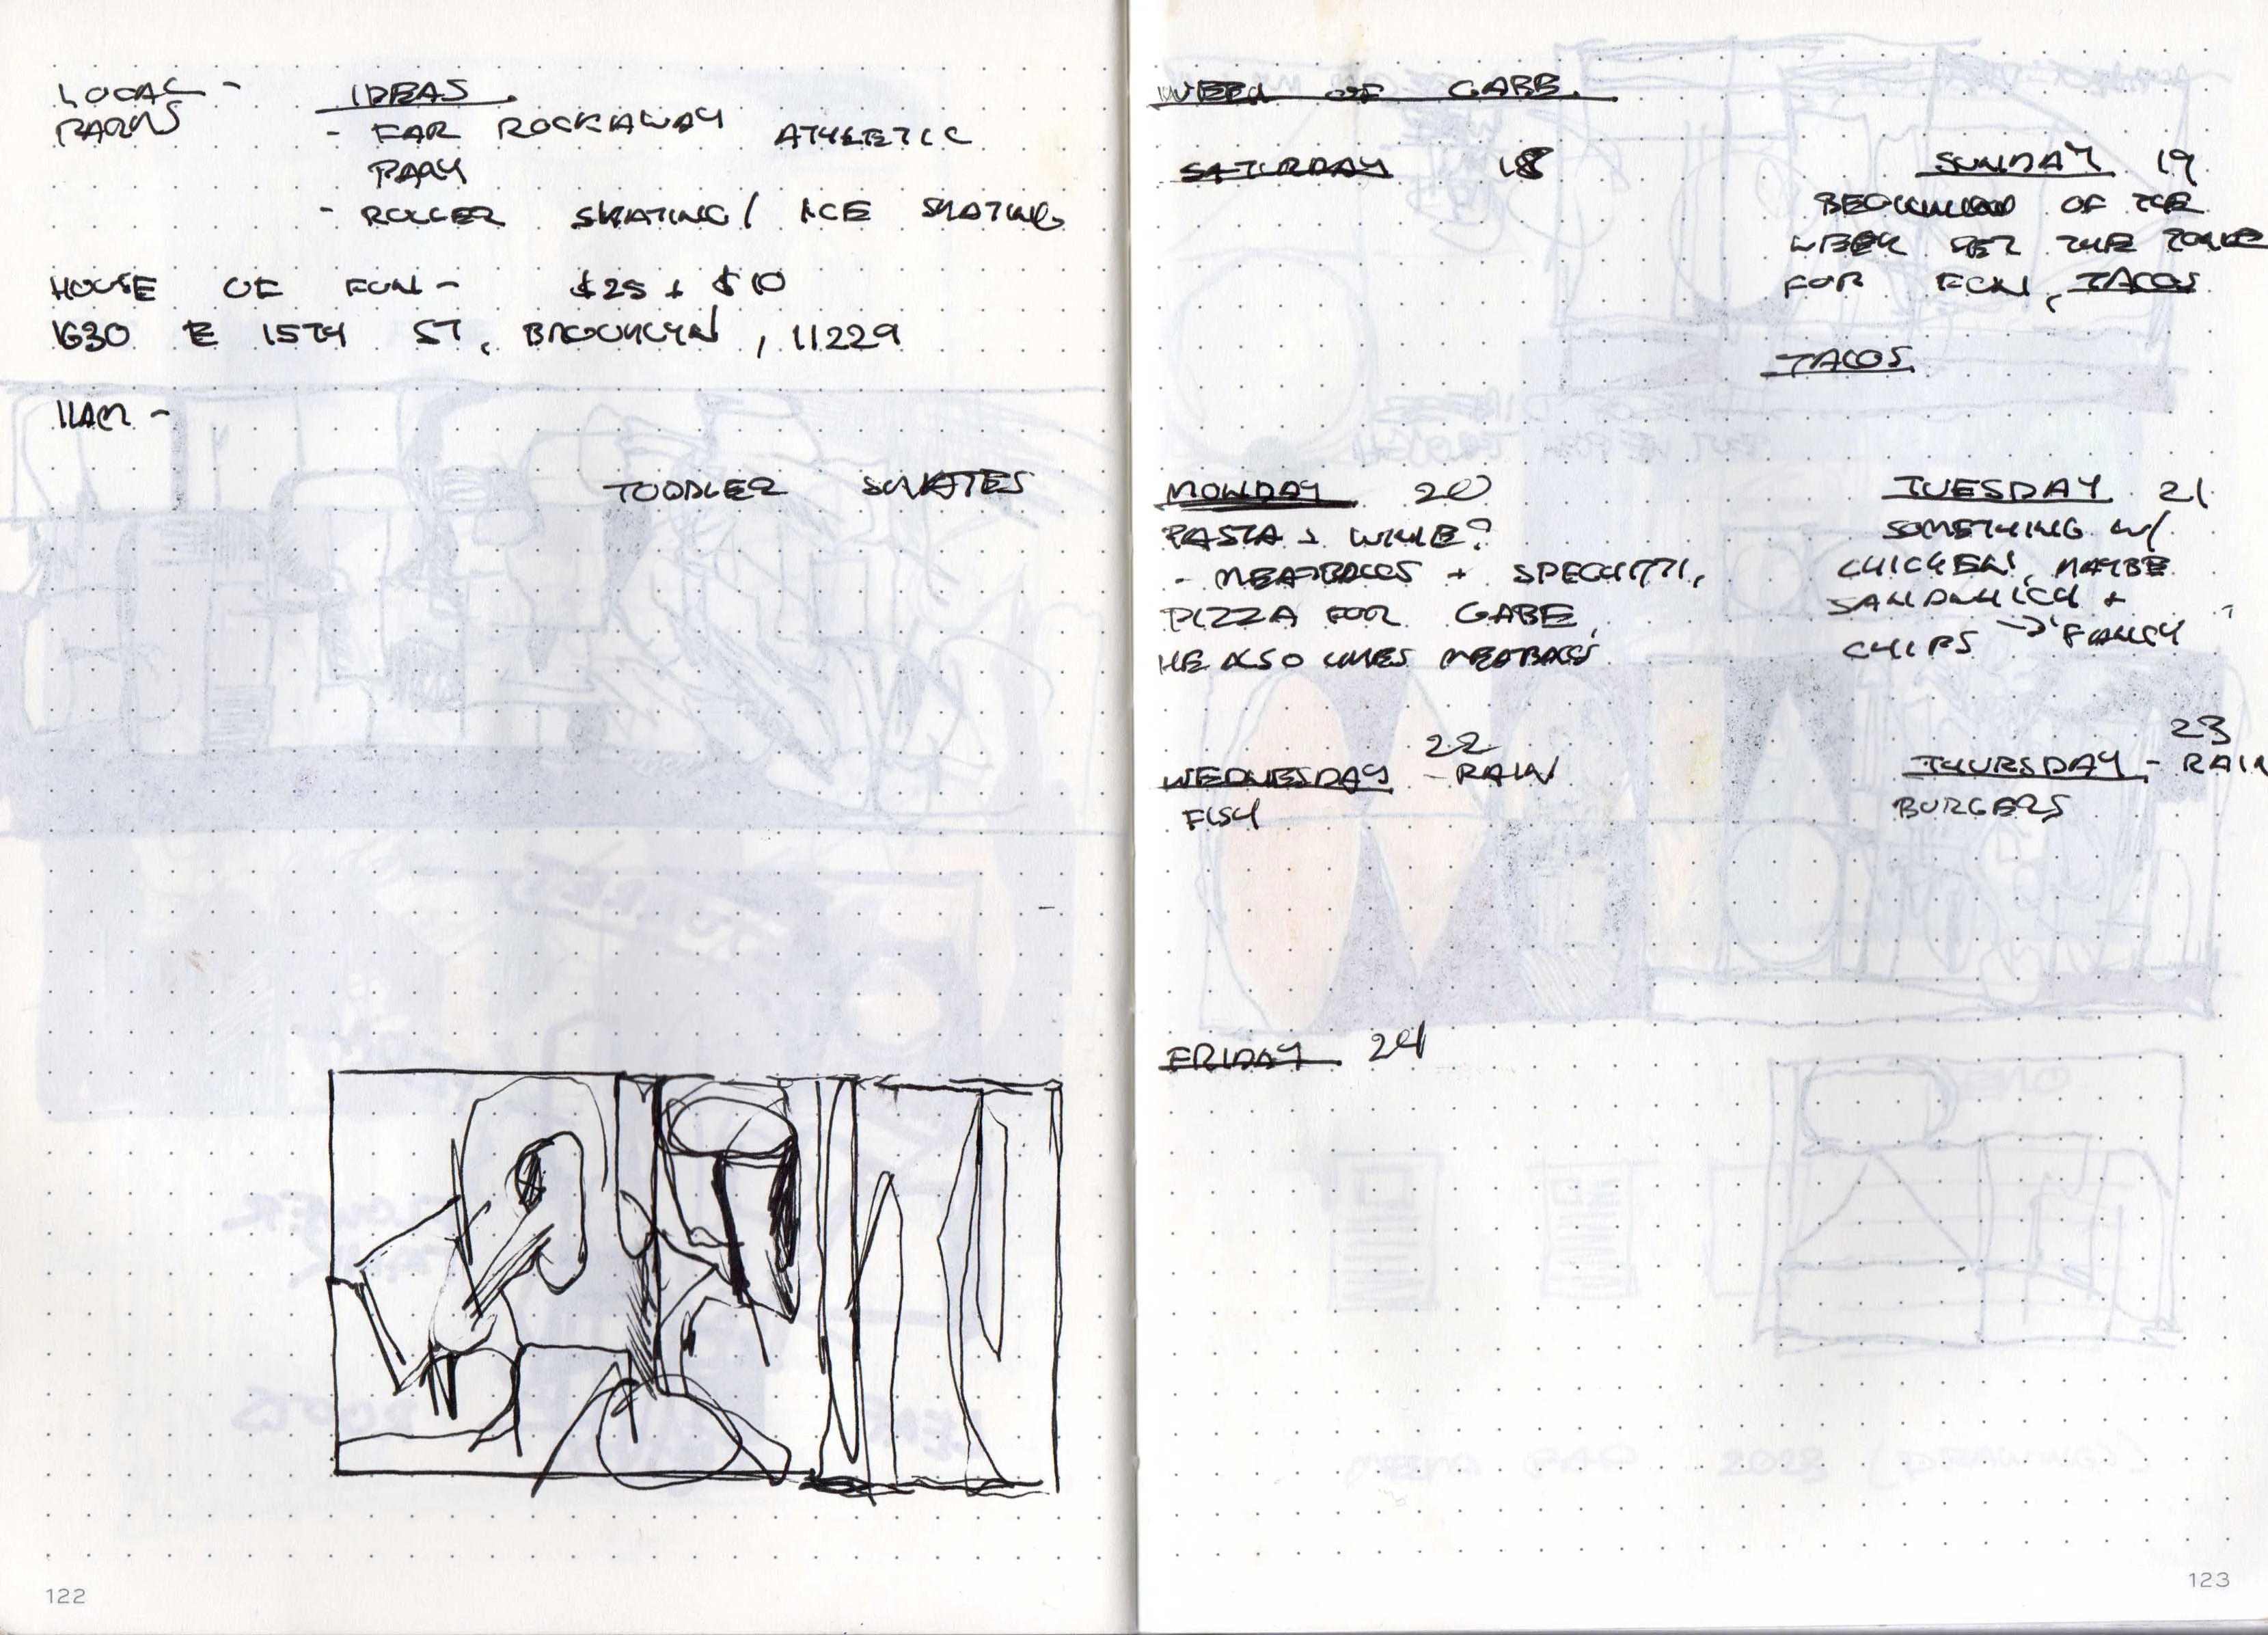 LOCAL -
PARKS
IDEAS
- FAR ROCKAWAY ATHLETIC
PARK
- ROLLER SKATING / ICE SKATING
HOUSE OF FUN - $25 + $10
1630 E 15TH ST, BROOKLYN, 11229
11AM -
TODDLER SKATES
122
WEEK OF GABE.
SATURDAY 18
SUNDAY 19
OF THE
WEEK SET THE
FOR FUN, TACOS
TACOS
MONDAY 20
PASTA + WINE?
- MEATBALLS + SPEGHITTI,
PIZZA FOR GABE,
HE ALSO LIKES MEATBALLS
TUESDAY 21
SOMETHING W/
CHICKEN, MAYBE
SANDWHICH +
CHIPS → FANCY
22
WEDNESDAY - RAIN
FISH
23
THURSDAY - RAIN
BURGERS
FRIDAY 24
123